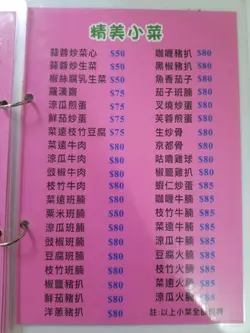 精美小菜
蒜蓉炒菜心 $50
蒜蓉炒生菜 $50
椒絲腐乳生菜 $50
羅漢齋 $75
涼瓜煎蛋 $75
鮮茄炒蛋 $75
菜遠枝竹豆腐 $75
菜遠牛肉 $80
涼瓜牛肉 $80
豉椒牛肉 $80
枝竹牛肉 $80
菜遠班腩 $80
粟米班腩 $80
涼瓜班腩 $80
豉椒班腩 $80
豆腐班腩 $80
枝竹班腩 $80
椒鹽豬扒 $80
鮮茄豬扒 $80
洋蔥豬扒 $80
咖喱豬扒 $80
黑椒豬扒 $80
魚香茄子 $80
茄子班腩 $80
叉燒炒蛋 $80
芙蓉煎蛋 $80
生炒骨 $80
京都骨 $80
咕嚕雞球 $80
椒鹽雞扒 $80
蝦仁炒蛋 $85
咖喱牛腩 $85
枝竹牛腩 $85
菜遠牛腩 $85
涼瓜牛腩 $85
豆腐火腩 $85
枝竹火腩 $85
菜遠火腩 $85
涼瓜火腩 $85
註:以上小菜全部例牌